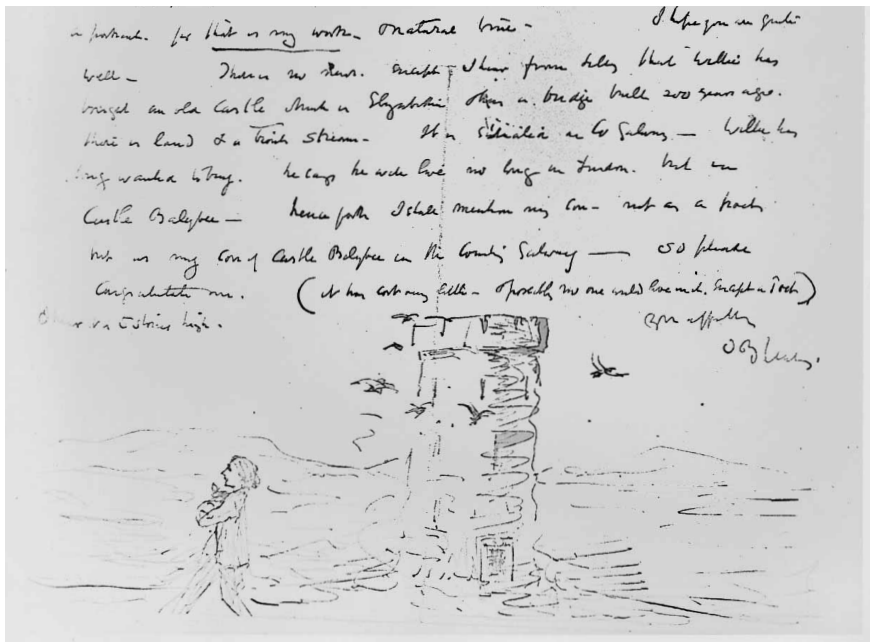 a portrait. for that is my work – natural I hope you are quite
well – There is no news. except I hear from Lily that Willie has
bought an old Castle which is Elizabethan & has a bridge built 200 years ago.
there is land & a trout stream – It is situated in Co Galway – Willie has
long wanted to buy. he says he will live no longer in London. but in
Castle Balylee – hence forth I shall mention my son – not as a poet
but as my son of Castle Balylee in the County Galway — so please
congratulate me. (it has cost very little – & possibly no one would live in it. except a Poet)
is 5 stories high. Yrs affectly
J B Yeats.